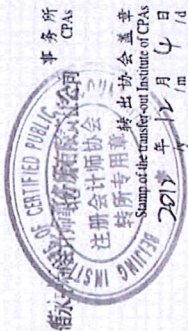 事务所
CPAs
BEIJING INSTITUTE OF CERTIFIED PUBLIC
注册会计师协会
转所专用章
转出协会盖章
Stamp of the transfer-out Institute of CPAs
2019 年 12 月 4 日
/m /d